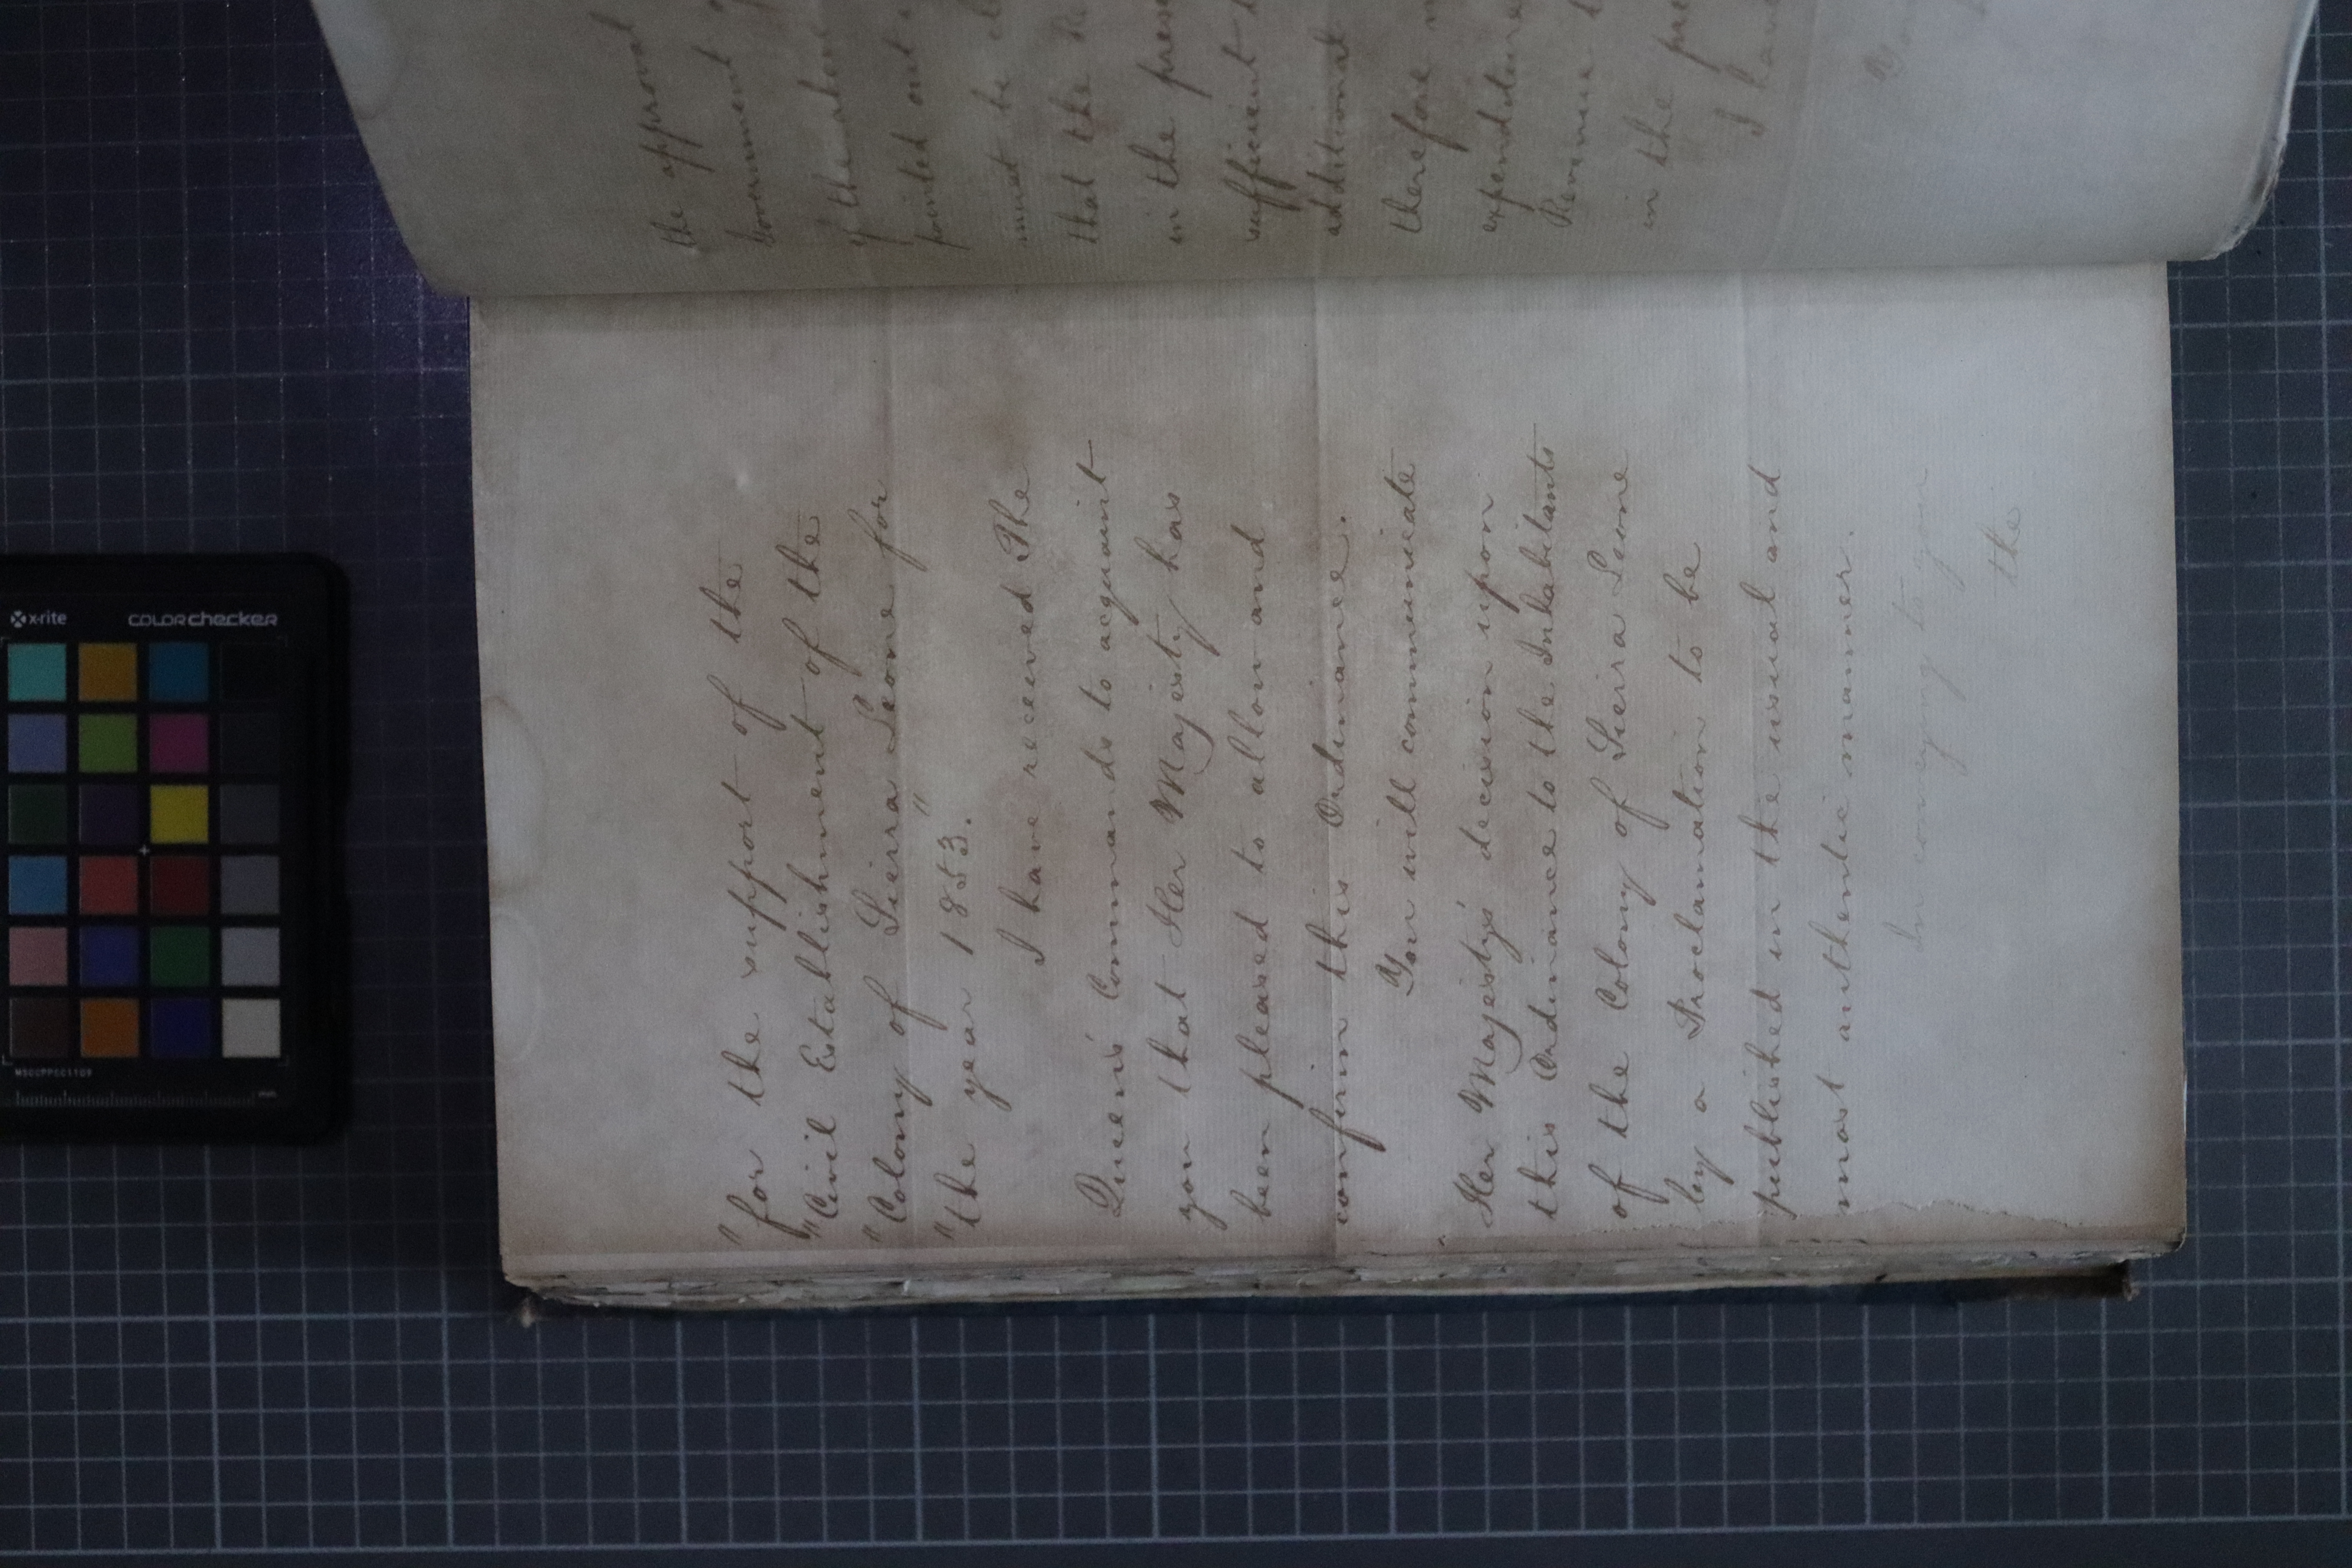 "for the support of the
"Civil Establishment of the
"Colony of Sierra Leone for
"the year 1853."
I have received The
Queen's Commands to acquaint
you that Her Majesty has
been pleased to allow and
confirm this Ordinance.
You will communicate
Her Majesty's decision upon
this Ordinance to the Inhabitants
of the Colony of Sierra Leone
by a Proclamation to be
published in the usual and
most authentic manner.
In conveying to you
the
the approval
Government
of the above
pointed out
must be
that the
in the
sufficient
additional
therefore
expenditure
Revenue
in the
I have
x-rite
colorchecker
MSCCPPCC1109
mm